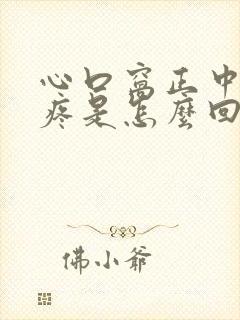 心口窩正中
疼是怎麼回
佛小爺